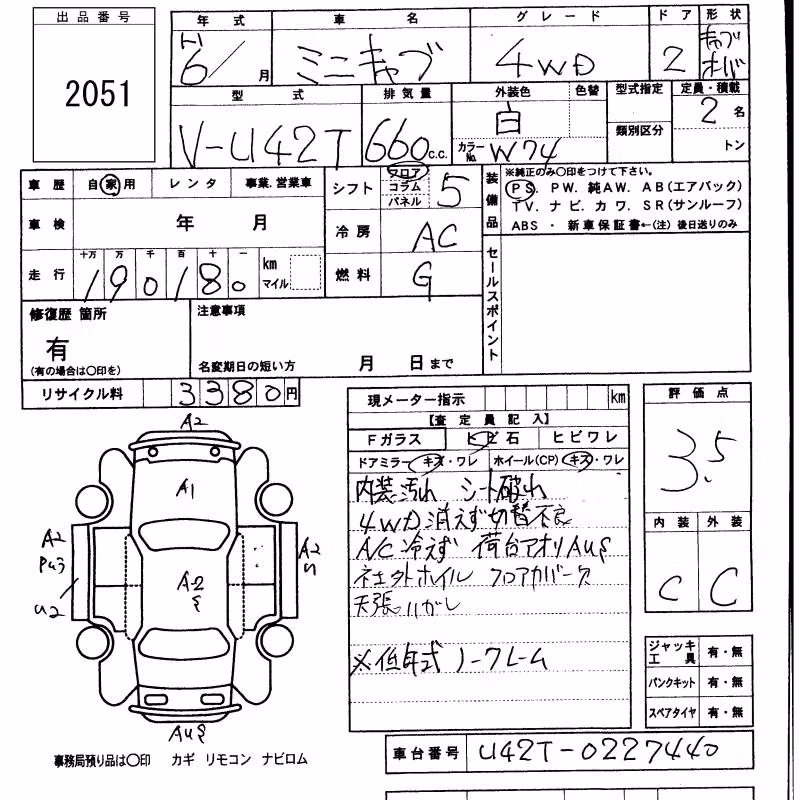 出品番号
2051
年式 車名 グレード ドア 形状
H6/ 月 ミニキャブ 4WD 2 キャブオーバ
型式 排気量 外装色 色替 型式指定 定員・積載
V-U42T 660 c.c. 白 類別区分 2 名
カラーNo. W74 トン
車歴 自家用 レンタ 事業.営業車 シフト フロア コラム パネル 5
車検 年 月 冷房 AC
走行 十万 万 千 百 十 一
190180 km マイル 燃料 G
装備品 ※純正のみ○印をつけて下さい。
PS. PW. 純AW. AB(エアバック)
TV. ナビ. カワ. SR(サンルーフ)
ABS ・ 新車保証書←(注) 後日送りのみ
セールスポイント
修復歴 箇所 注意事項
有
(有の場合は○印を) 名変期日の短い方 月 日まで
リサイクル料 3380円
現メーター指示 km
【査定員記入】
Fガラス ヒビ石 ヒビワレ
ドアミラー キズ・ワレ ホイール(CP) キズ・ワレ
内装汚れ シート破れ
4WD消えず切替不良
A/C冷えず 荷台アオリAUS
フロアカバー欠
天張ハガレ
※低年式ノークレーム
評価点
3.5
内装 外装
C C
ジャッキ工具 有・無
パンクキット 有・無
スペアタイヤ 有・無
車台番号 U42T-0227440
A2
A1
A2
A2
U2
A2
S
事務局預り品は○印 カギ リモコン ナビロム